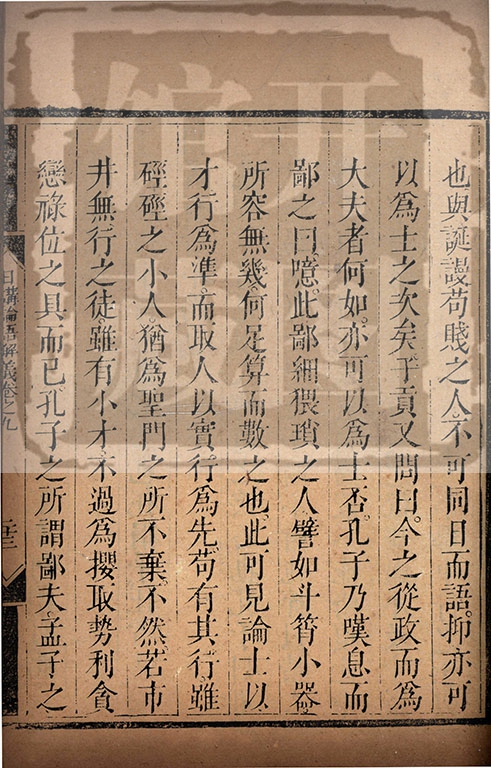 也與誕謾苟賤之人不可同日而語抑亦可
以為士之次矣子貢又問曰今之從政而為
大夫者何如亦可以為士否孔子乃嘆息而
鄙之曰噫此鄙細猥瑣之人譬如斗筲小器
所容無幾何足算而數之也此可見論士以
才行為準而取人以實行為先苟有其行雖
硜硜之小人猶為聖門之所不棄不然若市
井無行之徒雖有小才不過為攖取勢利貪
戀祿位之具而已孔子之所謂鄙夫孟子之
日講論語解義卷之九